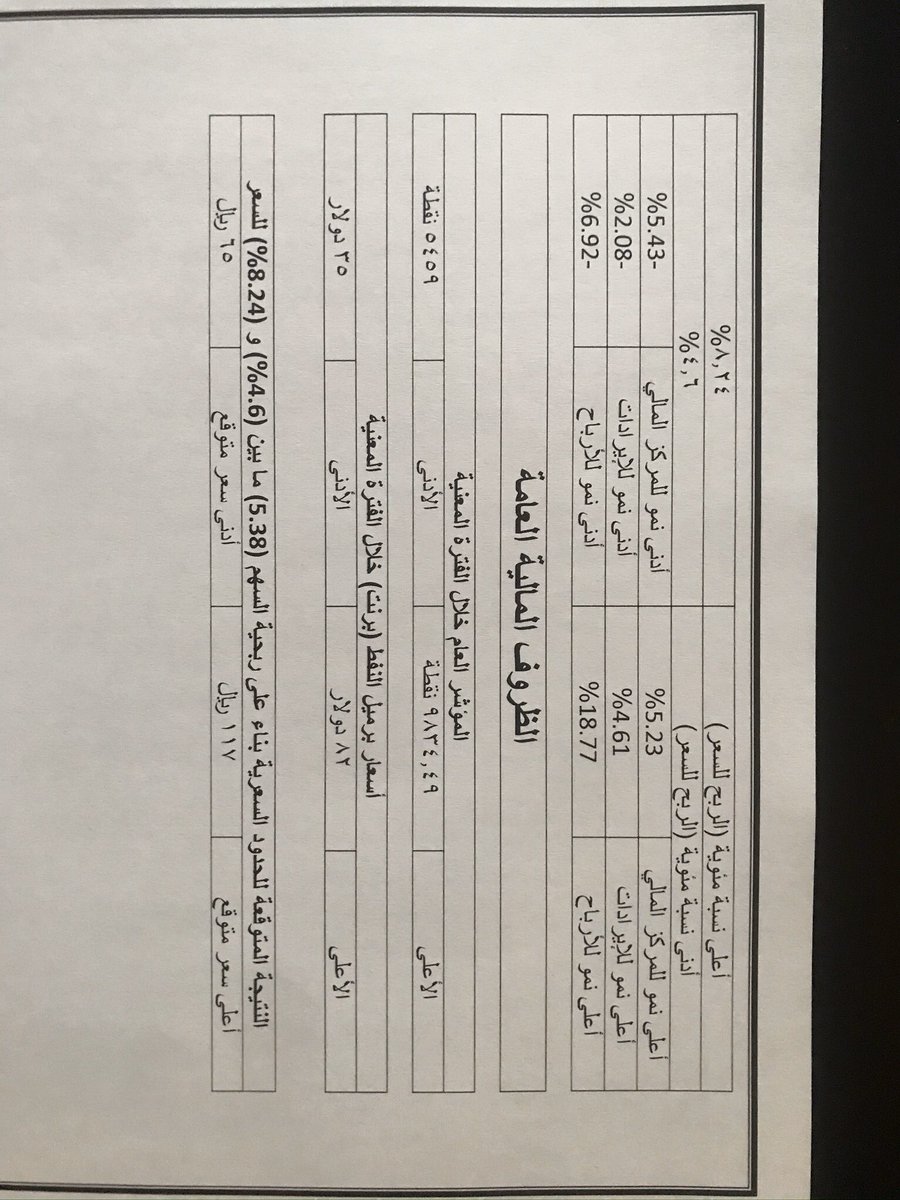 أعلى نسبة مئوية (الربح للسعر) %٨,٢٤
أدنى نسبة مئوية (الربح للسعر) %٤,٦
أعلى نمو للمركز المالي %5.23 أدنى نمو للمركز المالي %5.43-
أعلى نمو للإيرادات %4.61 أدنى نمو للإيرادات %2.08-
أعلى نمو للأرباح %18.77 أدنى نمو للأرباح %6.92-
الظروف المالية العامة
المؤشر العام خلال الفترة المعنية
الأعلى ٩٨٣٤,٤٩ نقطة الأدنى ٥٤٥٩ نقطة
أسعار برميل النفط (برنت) خلال الفترة المعنية
الأعلى ٨٢ دولار الأدنى ٣٥ دولار
النتيجة المتوقعة للحدود السعرية بناء على ربحية السهم (5.38) ما بين (4.6%) و (8.24%) للسعر
أعلى سعر متوقع ١١٧ ريال أدنى سعر متوقع ٦٥ ريال